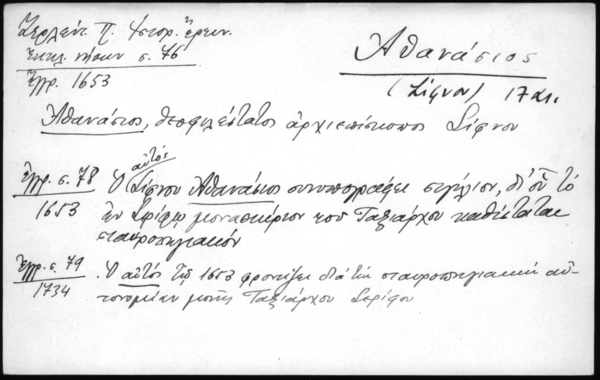 Ζερλέντ. Π. Ἱστορ. Ἔρευν.
Ἐκκλ. νήσων σ. 76
Ἔγγρ. 1653
Ἀθανάσιος
(Σίφνου) 17 αι.
Ἀθανάσιος, θεοφιλέστατος ἀρχιεπίσκοπος Σίφνου
Ἔγγρ. σ. 78
1653
Ὁ αὐτὸς Σίφνου Ἀθανάσιος συνυπογράφει σιγίλιον, δι' οὗ τὸ
ἐν Σερίφῳ μοναστήριον τοῦ Ταξιάρχου καθίσταται
σταυροπηγιακόν
Ἔγγρ. σ. 79
1734
Ὁ αὐτὸς τῷ 1653 φροντίζει διὰ τὴν σταυροπηγιακὴν αὐ-
τονομίαν μονῆς Ταξιάρχου Σερίφου